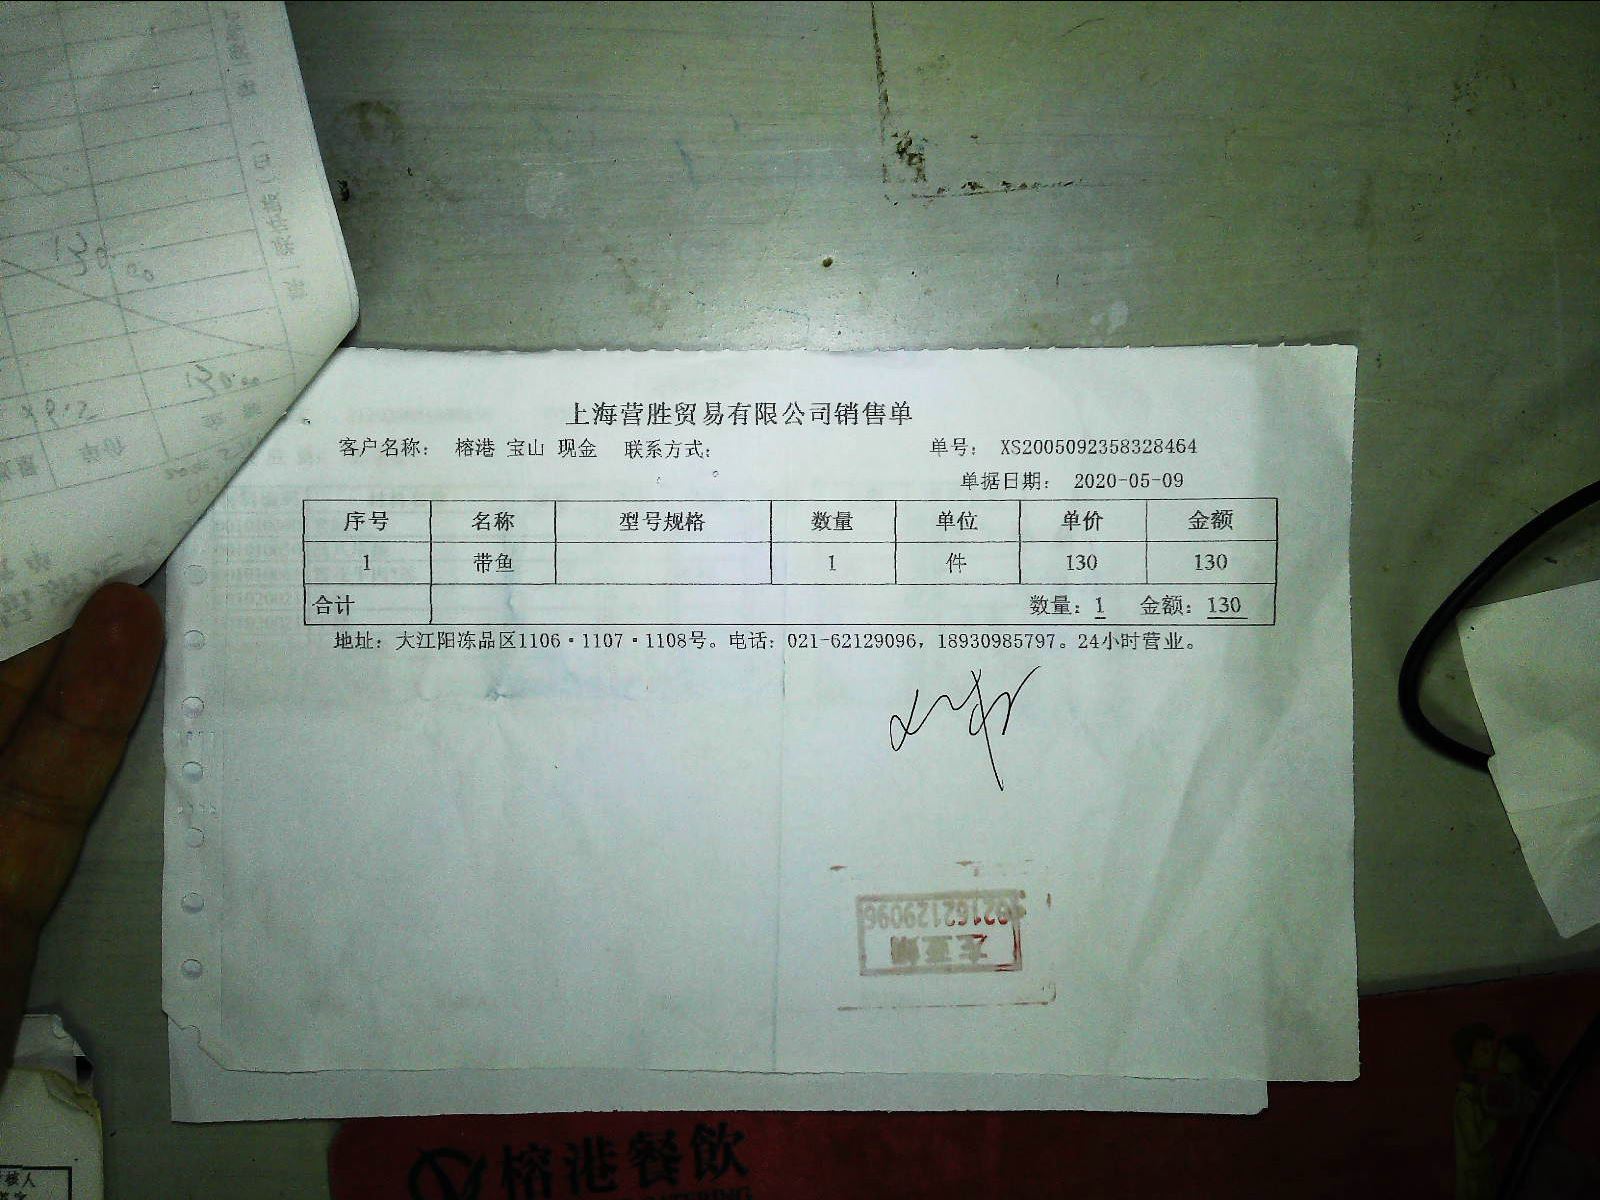 上海营胜贸易有限公司销售单
客户名称： 榕港 宝山 现金 联系方式： 单号： XS2005092358328464
单据日期： 2020-05-09
序号 名称 型号规格 数量 单位 单价 金额
1 带鱼 1 件 130 130
合计 数量：1 金额：130
地址：大江阳冻品区1106·1107·1108号。电话：021-62129096，18930985797。24小时营业。
02162129096
榕港餐飲
130.00
130.00
单价
核人